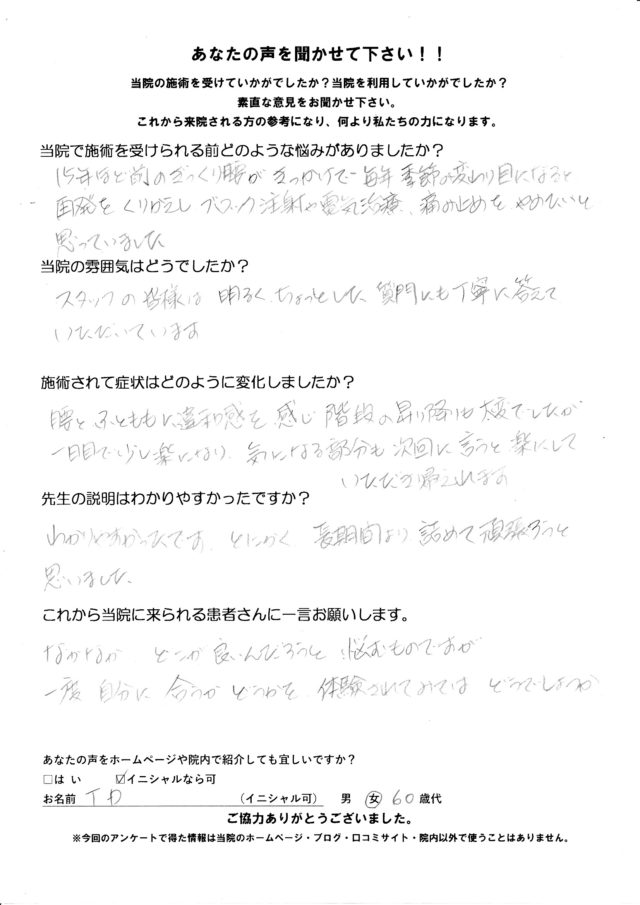 あなたの声を聞かせて下さい！！
当院の施術を受けていかがでしたか？当院を利用していかがでしたか？
素直な意見をお聞かせ下さい。
これから来院される方の参考になり、何より私たちの力になります。
当院で施術を受けられる前どのような悩みがありましたか？
15年ほど前のぎっくり腰がきっかけで毎年季節の変わり目になると
再発をくりかえし ブロック注射や電気治療、痛み止めをやめたいと
思っていました
当院の雰囲気はどうでしたか？
スタッフの皆様は明るく ちょっとした質問にも丁寧に答えて
いただいています
施術されて症状はどのように変化しましたか？
腰とふとももに違和感を感じ階段の昇り降りも大変でしたが
一日目で少し楽になり、気になる部分も次回に言うと楽にして
いただき帰えれます
先生の説明はわかりやすかったですか？
わかりやすかったです。とにかく 長期間より詰めて頑張ろうと
思いました。
これから当院に来られる患者さんに一言お願いします。
なかなか どこが良いんだろうと 悩むものですが
一度 自分に合うかどうかを、体験されてみては どうでしょうか
あなたの声をホームページや院内で紹介しても宜しいですか？
□はい ☑イニシャルなら可
お名前 （イニシャル可） 男 女 60歳代
ご協力ありがとうございました。
※今回のアンケートで得た情報は当院のホームページ・ブログ・口コミサイト・院内以外で使うことはありません。